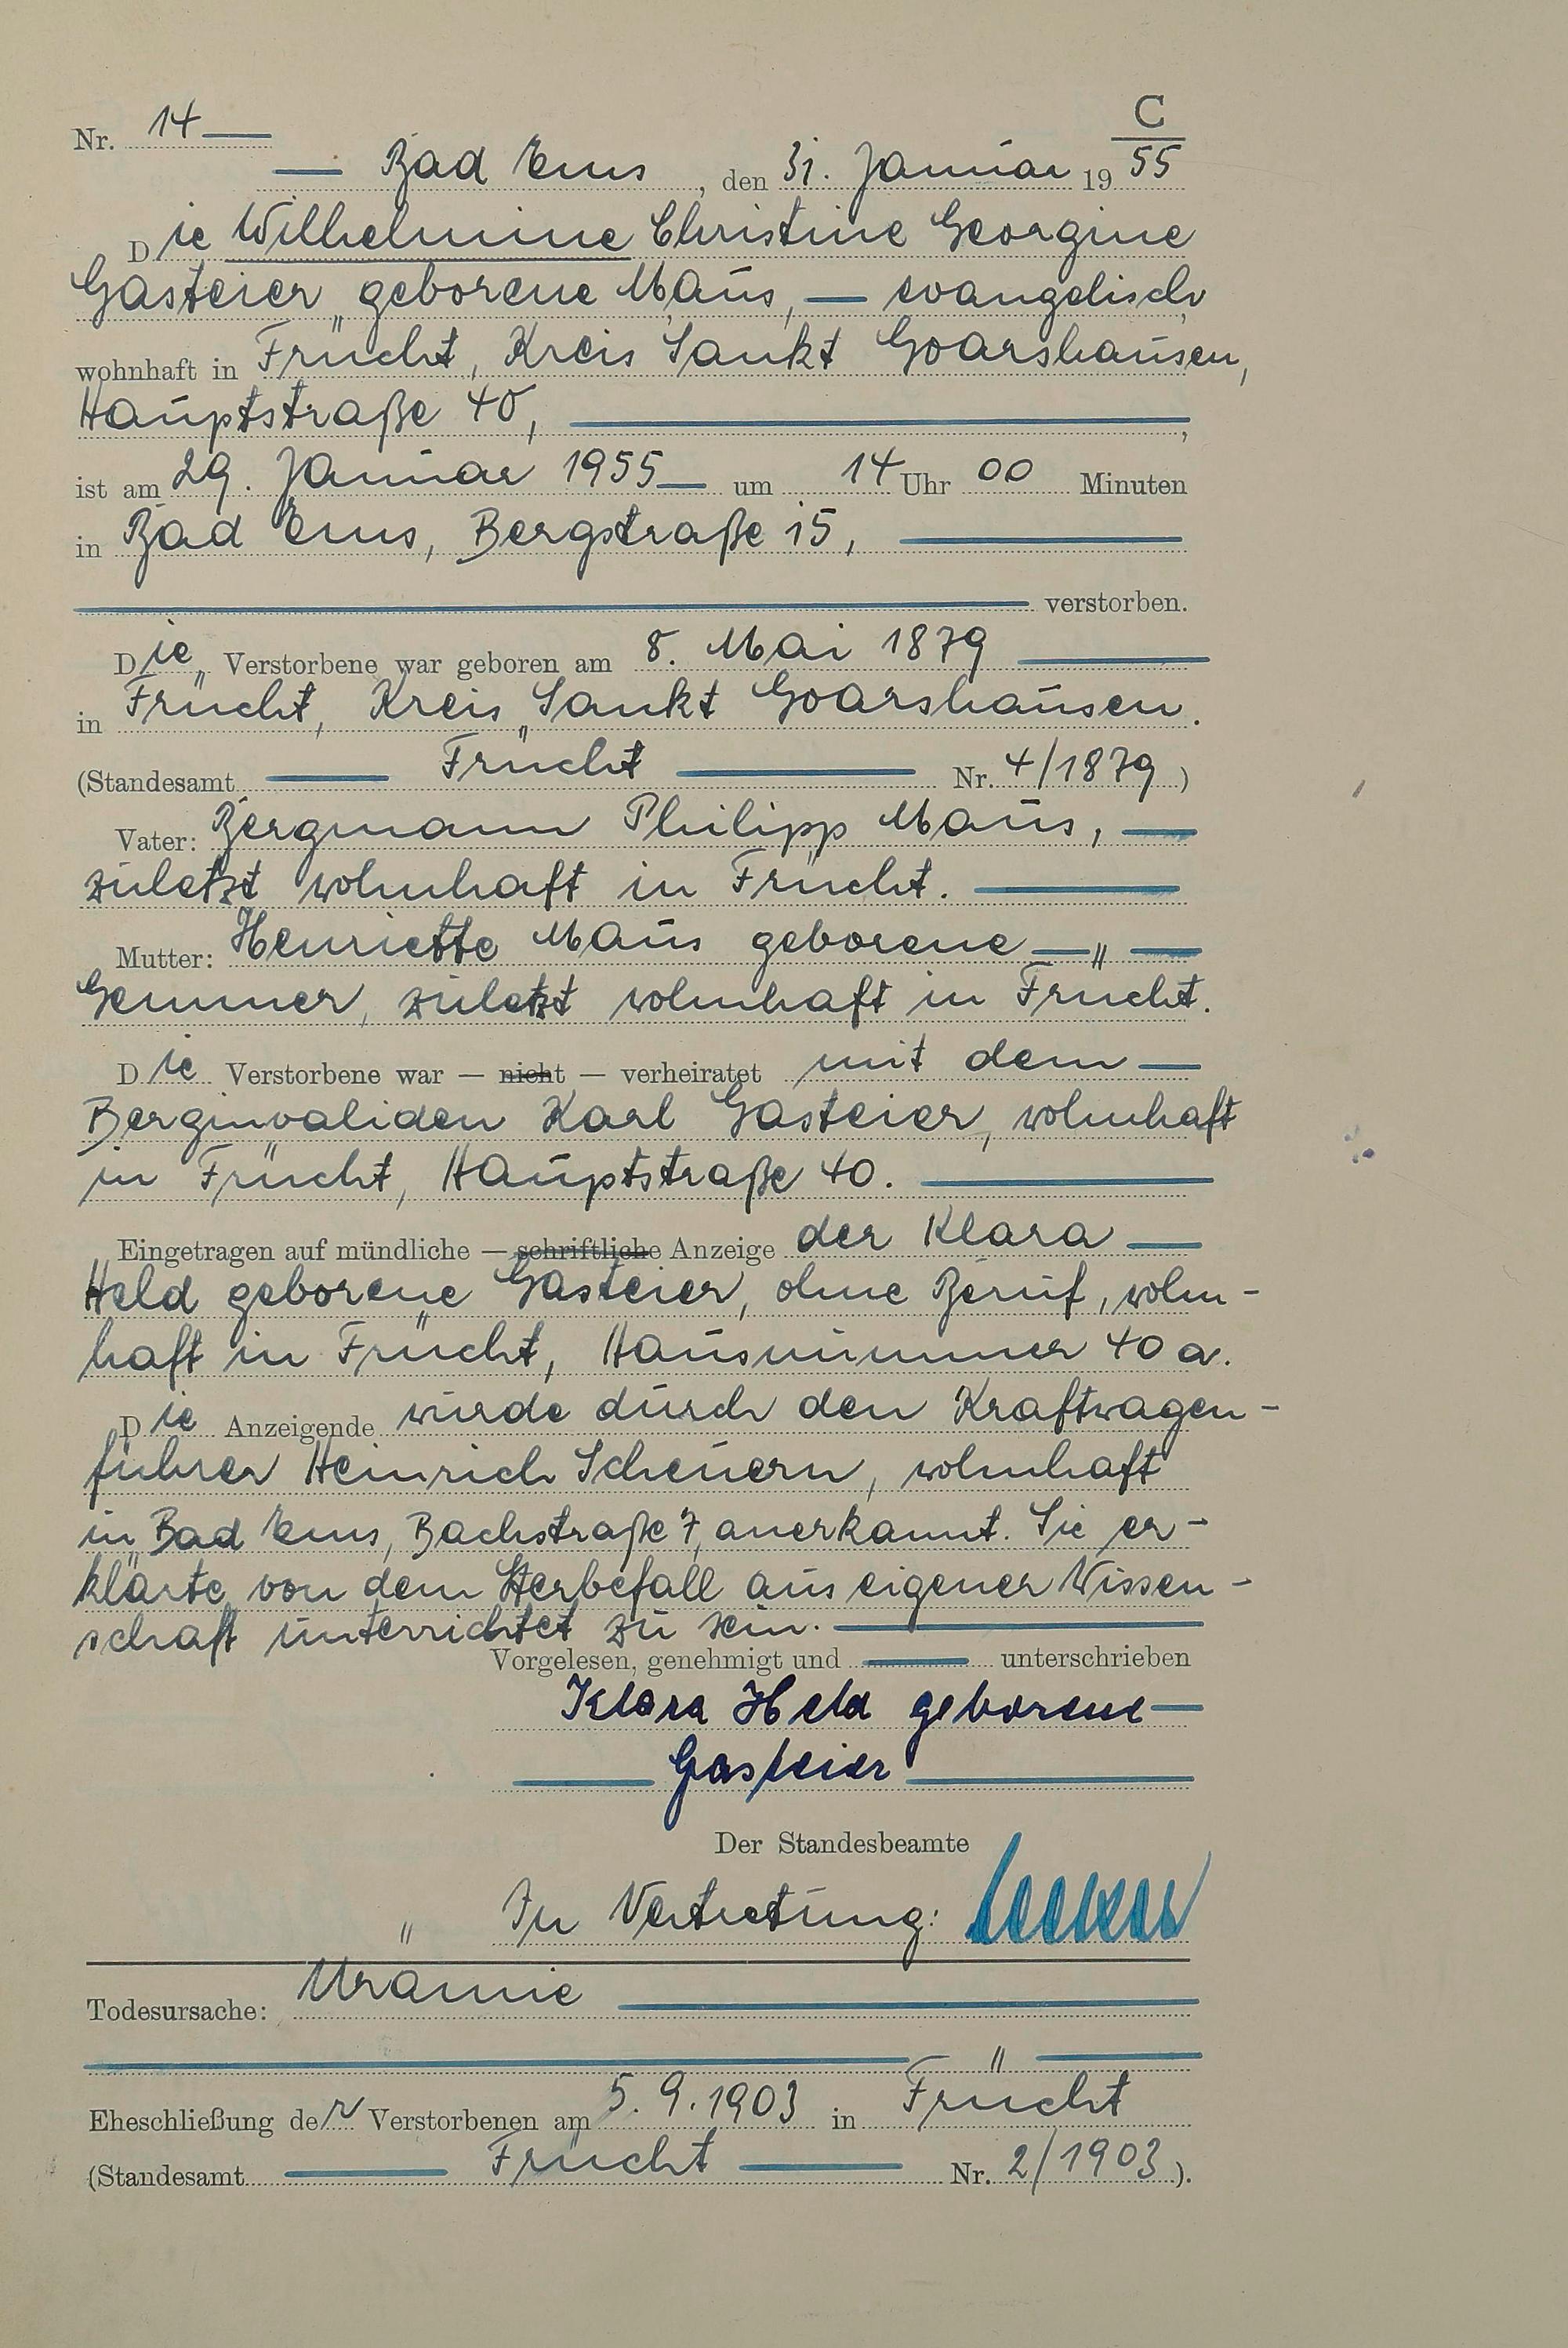 C
Nr. 14
Bad Ems, den 31. Januar 1955
Die Wilhelmine Christine Georgine
Gasteier geborene Maus, — evangelisch,
wohnhaft in Frücht, Kreis Sankt Goarshausen,
Hauptstraße 40,
ist am 29. Januar 1955 um 14 Uhr 00 Minuten
in Bad Ems, Bergstraße 15,
verstorben.
Die Verstorbene war geboren am 8. Mai 1879
in Frücht, Kreis Sankt Goarshausen.
(Standesamt Frücht Nr. 4/1879)
Vater: Bergmann Philipp Maus,
zuletzt wohnhaft in Frücht.
Mutter: Henriette Maus geborene
Gemmer, zuletzt wohnhaft in Frücht.
Die Verstorbene war — nicht — verheiratet mit dem
Berginvaliden Karl Gasteier, wohnhaft
in Frücht, Hauptstraße 40.
Eingetragen auf mündliche — schriftliche Anzeige der Klara
Held geborene Gasteier, ohne Beruf, wohn-
haft in Frücht, Hausnummer 40a.
Die Anzeigende wurde durch den Kraftwagen-
führer Heinrich Scheuern, wohnhaft
in Bad Ems, Bachstraße 7, anerkannt. Sie er-
klärte, von dem Sterbefall aus eigener Wissen-
schaft unterrichtet zu sein.
Vorgelesen, genehmigt und unterschrieben
Klara Held geborene
Gasteier
Der Standesbeamte
In Vertretung:
Todesursache: Urämie
Eheschließung der Verstorbenen am 5.9.1903 in Frücht
(Standesamt Frücht Nr. 2/1903).